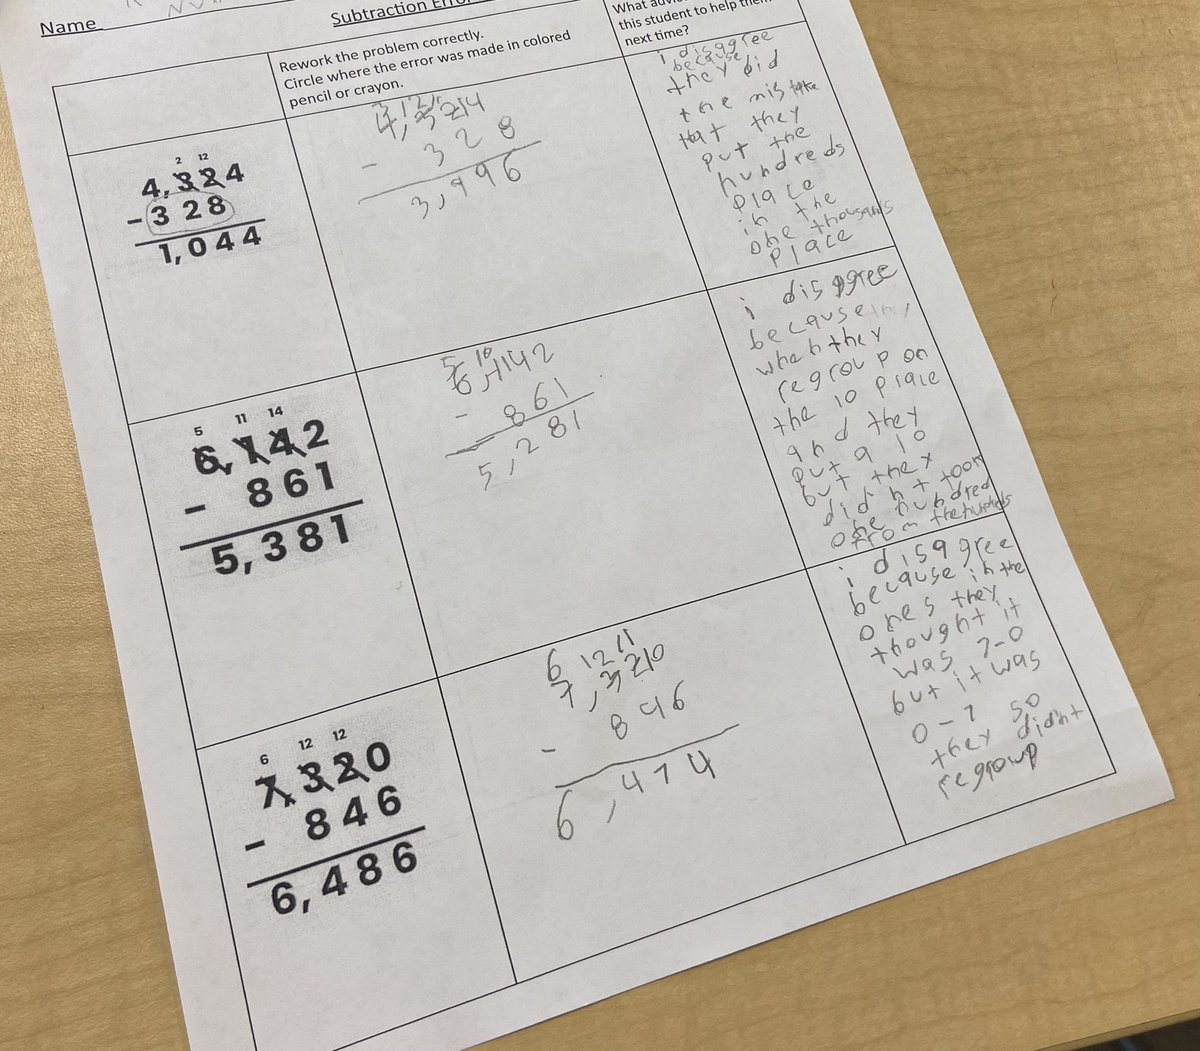 Name
Subtraction
Rework the problem correctly.
Circle where the error was made in colored
pencil or crayon.
this student to help them
next time?
2 12
4,324
- 328
1,044
4,324
- 328
3,996
i disggree
because
they did
the mistake
that they
put the
hundreds
place
in the
one thousands
place
5 11 14
6,142
- 861
5,381
5 10
6,1142
- 861
5,281
i disggree
because they
when they
regroup on
the 10 place
and they
put a 10
but they
didnt took
one hundred
from the hundreds
6 12 12
7,320
- 846
6,486
6 12 11
7,3210
- 846
6,474
i disagree
because in the
ones they
thought it
was 7-0
but it was
0-7 so
they didnt
regroup